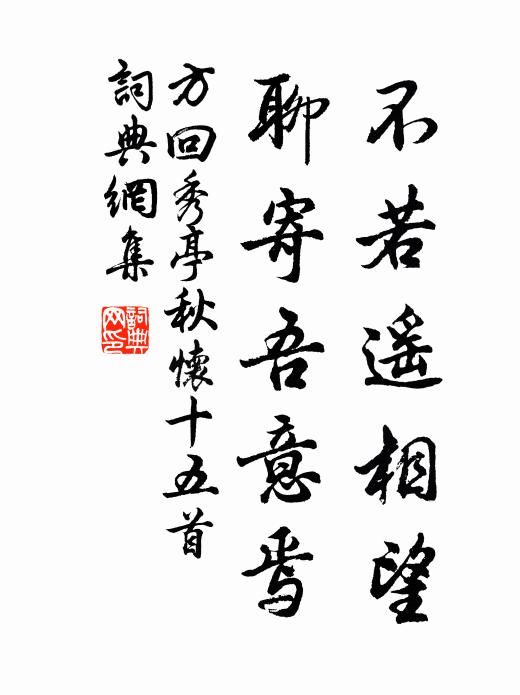 不若遥相望
聊寄吾意焉
方回秀亭秋懷十五首
詞典網集
詞典
网印